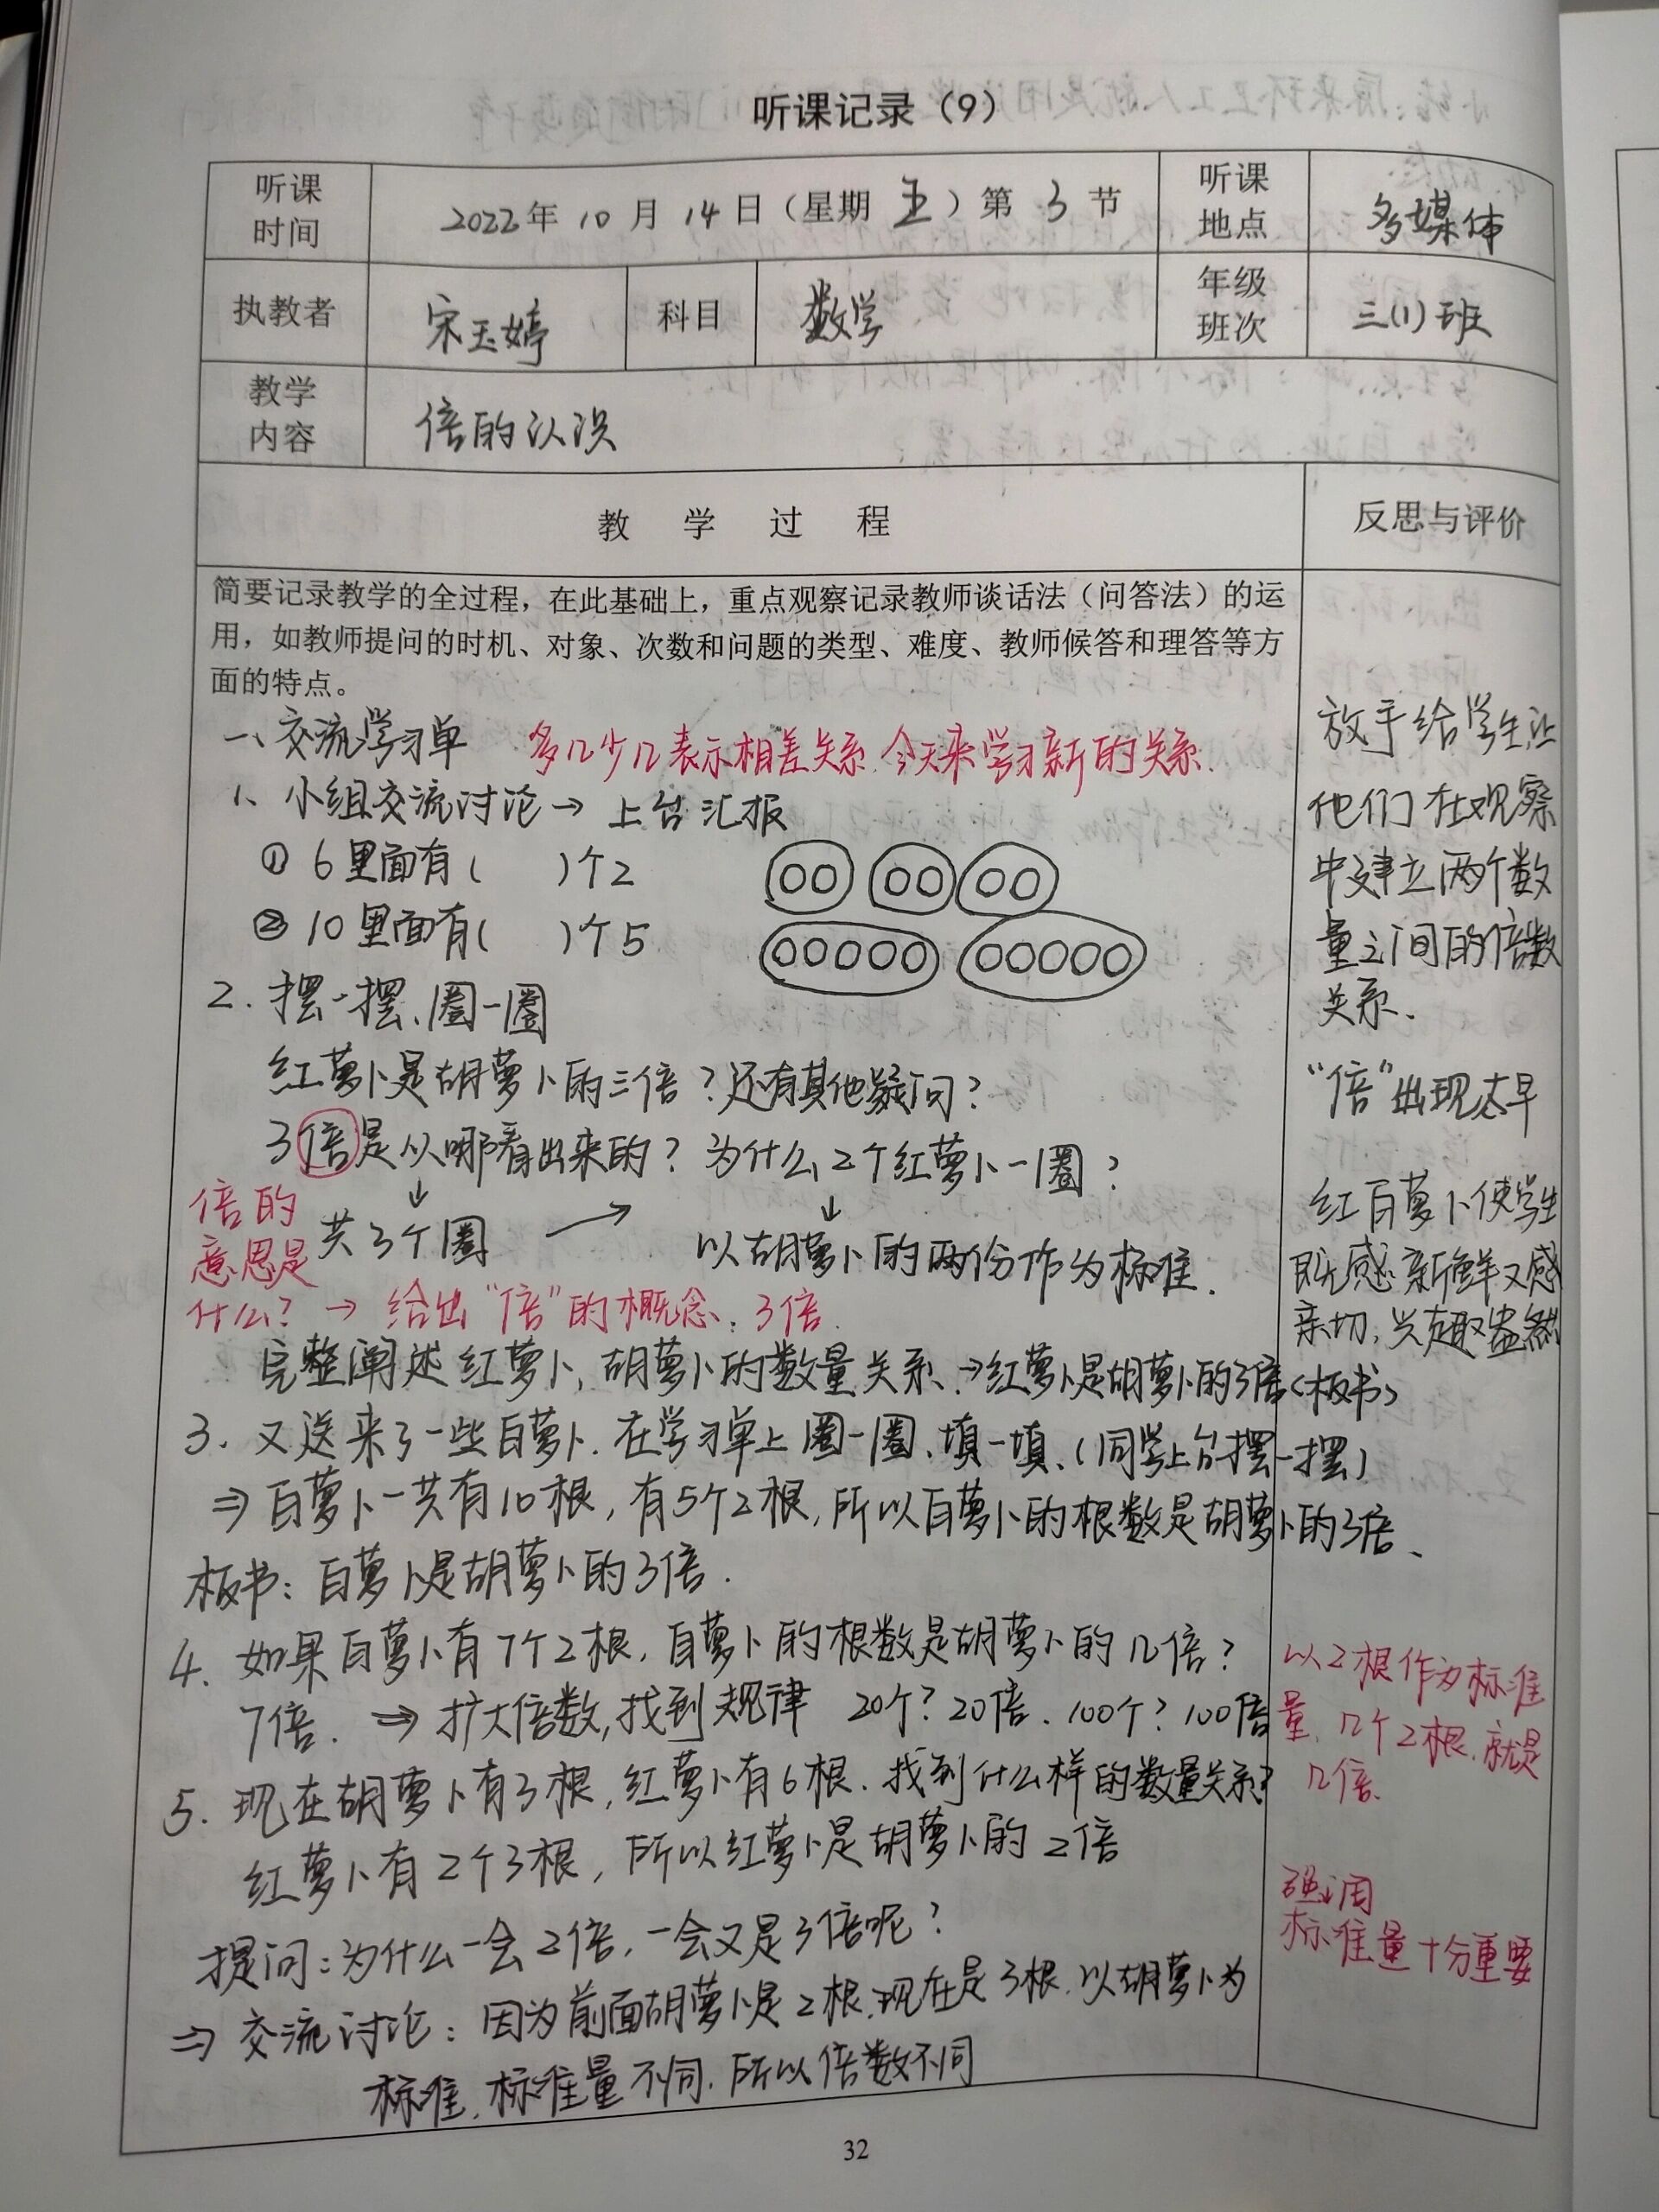 听课记录（9）
听课时间 2022年10月14日（星期五）第3节 听课地点 多媒体
执教者 宋玉婷 科目 数学 年级班次 三(1)班
教学内容 倍的认识
教 学 过 程 反思与评价
简要记录教学的全过程，在此基础上，重点观察记录教师谈话法（问答法）的运
用，如教师提问的时机、对象、次数和问题的类型、难度、教师候答和理答等方
面的特点。
一、交流学习单 多几少几表示相差关系.今天来学习新的关系.
1、小组交流讨论→上台汇报
① 6里面有( )个2
② 10里面有( )个5
2.摆一摆、圈一圈
红萝卜是胡萝卜的三倍？还有其他疑问？
3倍是从哪看出来的？为什么2个红萝卜一圈？
↓ ↓
共3个圈 → 以胡萝卜的两份作为标准.
倍的
意思是
什么？→ 给出“倍”的概念：3倍.
完整阐述红萝卜,胡萝卜的数量关系.→红萝卜是胡萝卜的3倍<板书>
3.又送来了一些白萝卜.在学习单上圈一圈、填一填、(同学上台摆一摆)
⇒白萝卜一共有10根,有5个2根,所以白萝卜的根数是胡萝卜的3倍、
板书：白萝卜是胡萝卜的3倍.
4.如果白萝卜有7个2根,白萝卜的根数是胡萝卜的几倍？
7倍. ⇒扩大倍数,找到规律 20个？20倍.100个？100倍
5.现在胡萝卜有3根,红萝卜有6根.找到什么样的数量关系？
红萝卜有2个3根,所以红萝卜是胡萝卜的2倍
提问：为什么一会2倍,一会又是3倍呢？
⇒交流讨论：因为前面胡萝卜是2根.现在是3根.以胡萝卜为
标准.标准量不同.所以倍数不同
放手给学生,让
他们在观察
中建立两个数
量之间的倍数
关系.
“倍”出现太早
红白萝卜使学生
既感新鲜又感
亲切,兴趣盎然
以2根作为标准
量,几个2根.就是
几倍.
强调
标准量十分重要
32